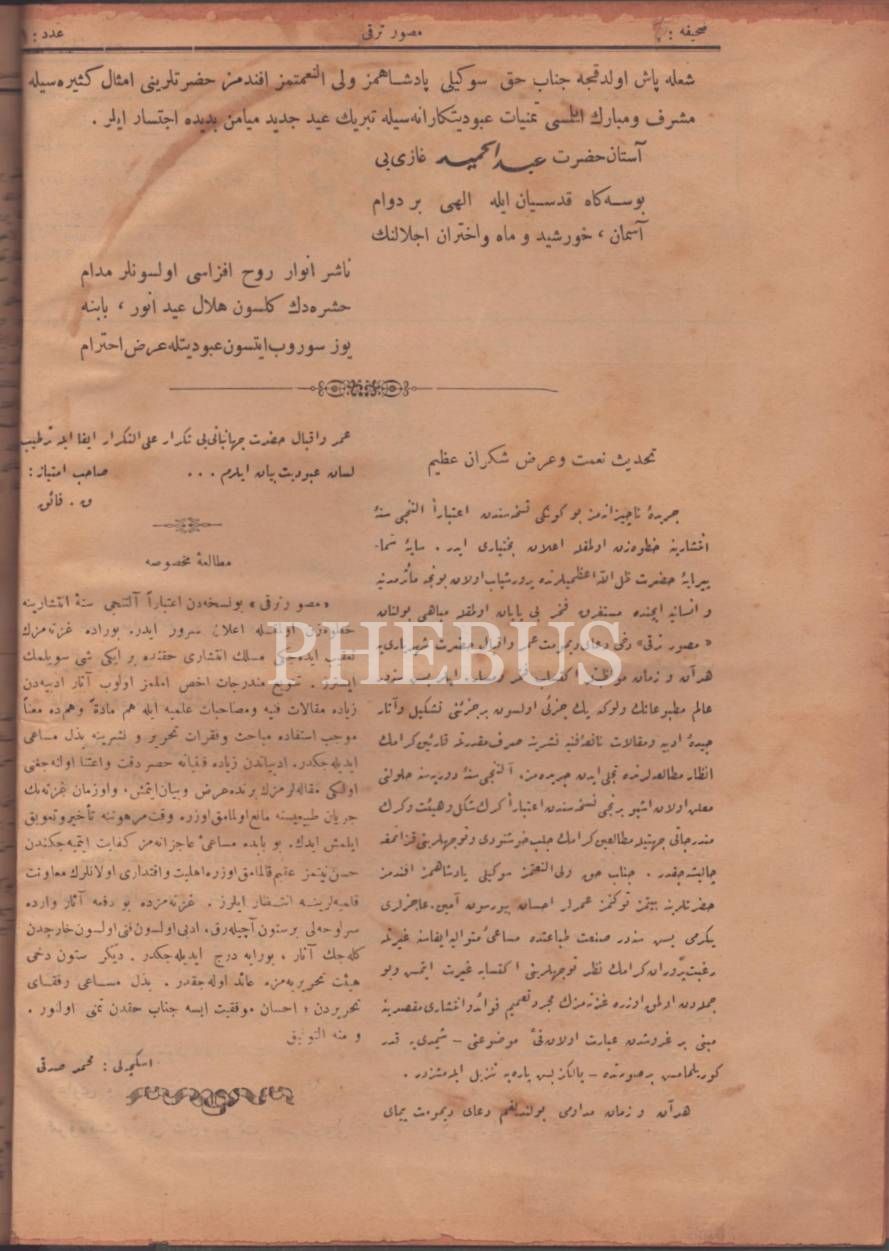 صحیفه :
مصور ترقی
عدد : ١
شعله پاش اولدقجه جناب حق سوکیلی پادشاهمز ولی النعمتمز افندمز حضرتلرینی امثال کثیره سیله
مشرف ومبارك ایتسی تمنیات عبودیتکارانه سیله تبریك عید جدید میامن بدیده اجتسار ایلر .
آستان حضرت عبد الحمید غازی بی
بوسه کاه قدسیان ایله الهی بر دوام
آسمان ، خورشید و ماه واختران اجلالنك
ناشر انوار روح افزاسی اولسونلر مدام
حشره دك کلسون هلال عید انور ، بابنه
یوز سوروب ایتسون عبودیتله عرض احترام
تحدیث نعمت وعرض شکران عظیم
جریدۀ ناچیزانه مز بو کونکی نسخه سندن اعتباراً التنجی سنۀ
انتشارینه خطوه زن اولمغله اعلان بختیاری ایدر . سایۀ
پیرایۀ حضرت ظل اللّه اعظمیلرنده پرورشیاب اولان بونجه مآثر مدنیه
و انسانیه ایچنده مستغرق فخر بی پایان اولمغله مباهی بولنان
« مصور ترقی » دخی دعای دیمومت عمر واقبال حضرت شهریاری یه
هر آن و زمان
عالم مطبوعاتك ولوکه پك جزئی اولسون بر جزئنی تشکیل وآثار
جیدۀ ادبیه ومقالات نافعۀ فنیه نشرینه صرف مقدرتله قارئین کرامك
انظار مطالعه لرنده تجلی ایدن جریده مز، آلتنجی سنۀ دوریه سنه حلولنی
معلن اولان اشبو برنجی نسخه سندن اعتباراً کرك شکل وهیئت وکرك
مندرجاتی جهتیله مطالعین کرامك جلب خوشنودی وتوجهلرینی قزانمغه
چالیشه جقدر . جناب حق ولی النعمتمز سوکیلی پادشاهمز افندمز
حضرتلرینه بیتمز توکنمز عمرلر احسان بیورسون آمین. عاجزلری
یکرمی بش سنه در صنعت طباعتده مساعیٔ متوالیه ایفاسنه غیرتله
رغبتپروران کرامك نظر توجهلرینی اکتسابه غیرت ایتمش وبو
جمله دن اولمق اوزره غزته مزك مجرد تعمیم فوائد وانتشاری مقصدینه
مبنی بر غروشدن عبارت اولان فیٔ موضوعنی – شیمدی یه قدر
کورلمامش بر صورتده – یالکز بش پاره یه تنزیل ایلمشزدر .
هر آن و زمان مداومی بولندیغم دعای دیمومت پیمای
عمر واقبال حضرت جهانبانی بی تکرار علی التکرار ایفا ایله ترطیب
لسان عبودیت بیان ایلرم ...
صاحب امتیاز :
و . فائق
مطالعۀ مخصوصه
« مصور ترقی » بو نسخه دن اعتباراً آلتنجی سنۀ انتشارینه
خطوه زن اولمغله اعلان سرور ایدر. بوراده غزته مزك
تعقیب ایده جکی مسلك انتشاری حقنده بر ایکی شی سویلمك
ایسترز . تنویع مندرجات اخص املمز اولوب آثار ادبیه دن
زیاده مقالات فنیه ومصاحبات علمیه ایله هم مادةً وهمده معناً
موجب استفاده مباحث وفقرات تحریر و نشرینه بذل مساعی
ایدیله جکدر. ادبیاتدن زیاده فنیاته حصر دقت واعتنا اوله جغنی
اولکی مقاله لرمزك برنده عرض وبیان ایتمش، واوزمان غزته نك
جریان طبیعیسنه مانع اولمامق اوزره وقت مرهوننه تأخیر وتعویق
ایلمش ایدك. بو بابده مساعیٔ عاجزانه مز کفایت ایتمیه جکندن
حسن نیتمز عقیم قالمامق اوزره اهلیت واقتداری اولانلرك معاونت
قلمیه لرینه انتظار ایلرز . غزته مزده بو دفعه آثار وارده
سرلوحه لی بر ستون آچیله رق، ادبی اولسون فنی اولسون خارجدن
کله جك آثار ، بورایه درج ایدیله جکدر . دیکر ستون دخی
هیئت تحریریه مزه عائد اوله جقدر . بذل مساعی رفقای
تحریردن ؛ احسان موفقیت ایسه جناب حقدن تمنی اولنور .
و منه التوفیق
اسکچه لی : محمد صدقی
PHEBUS